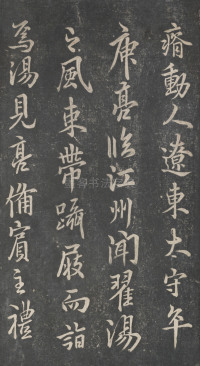 瘠動人遼東太守年
庾亮臨江州聞翟湯
之風束帶躡屐而詣
焉湯見亮備賓主禮